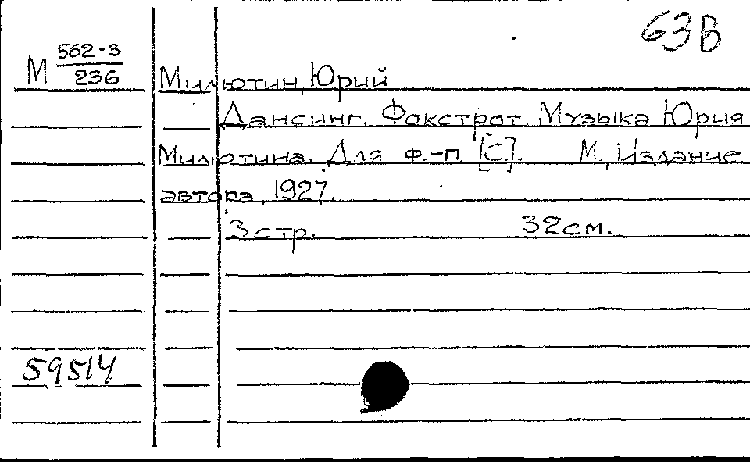 63В
М 562-3
236
Милютин, Юрий
Дансинг. Фокстрот. Музыка Юрия
Милютина. Для ф.-п. [С]. М, Издание
автора, 1927.
3 стр. 32 см.
59514